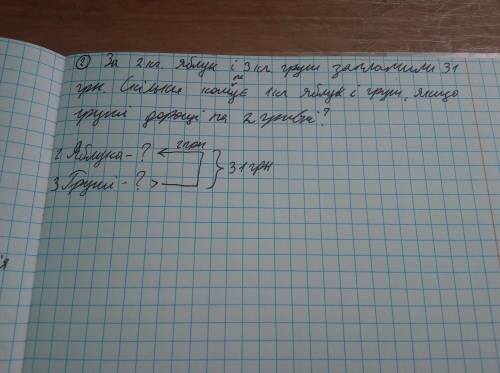 ② За 2 кг яблук і 3 кг груш заплатили 31
грн. Скільки коштує 1 кг яблук і груш, якщо
груші дорощі на 2 гривні?
2 Яблука - ? 2 грн
3 Груші - ? > 31 грн